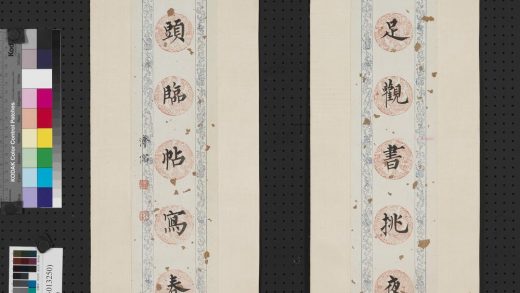 足觀書挑夜
頭臨帖寫春
KODAK Color Control Patches
013250)